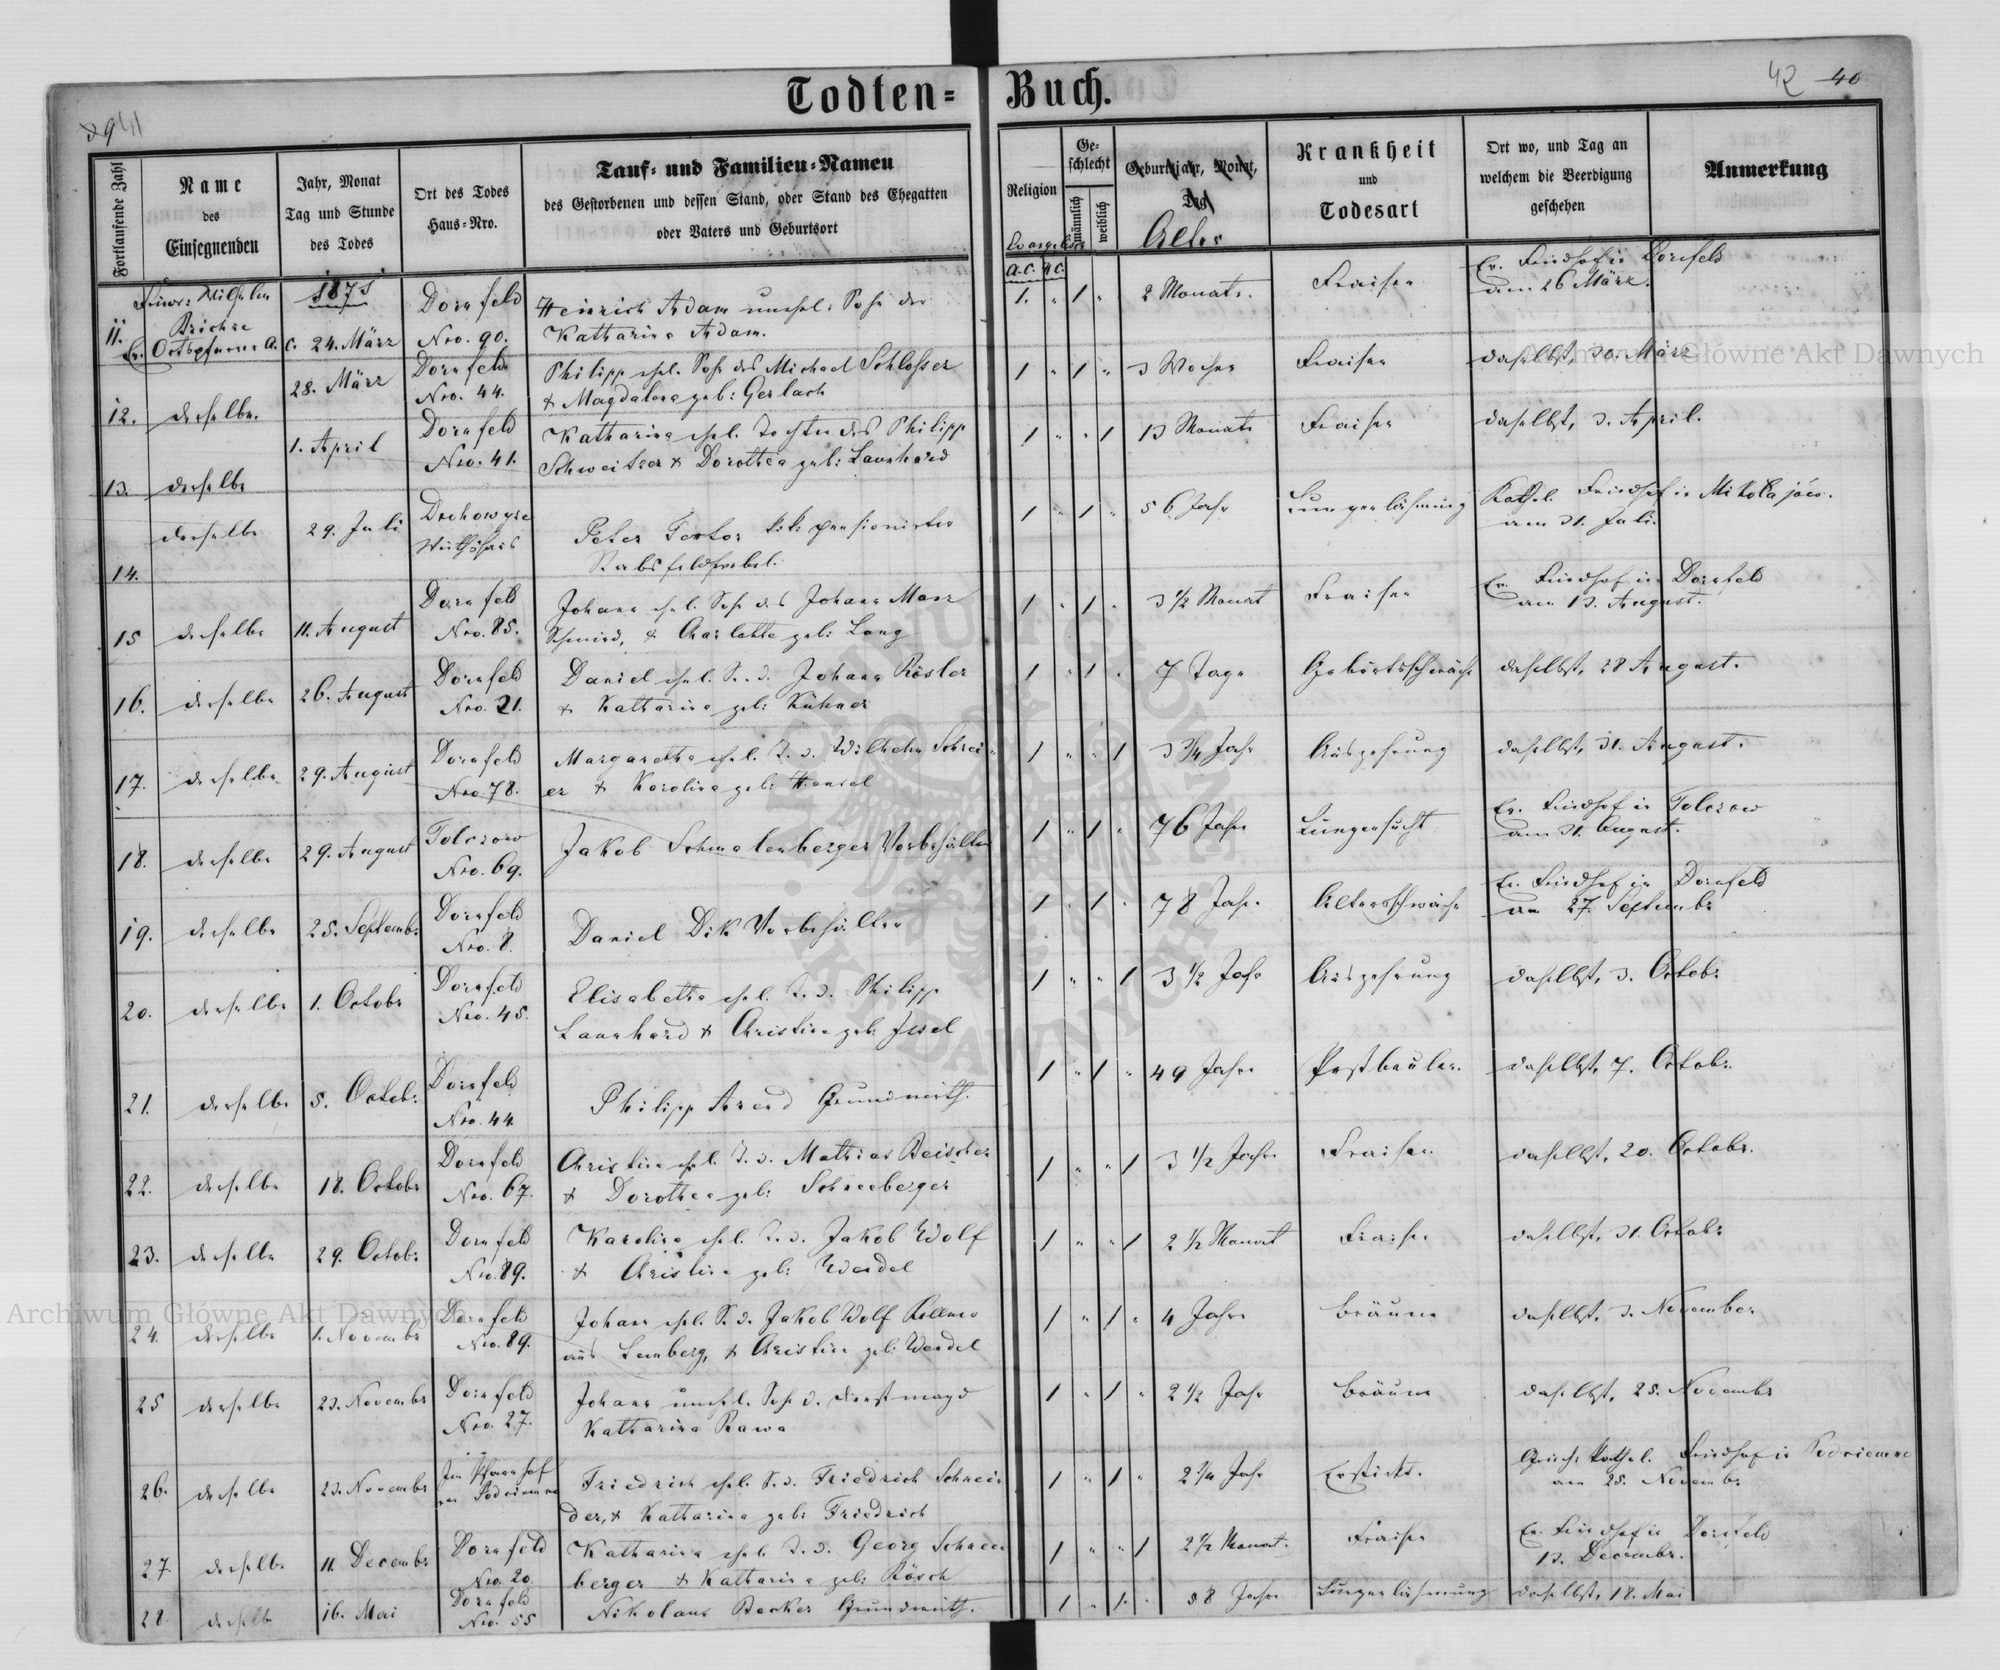 Todten-Buch.
3941
42 40
Fortlaufende Zahl
Name
des
Einsegnenden
Jahr, Monat
Tag und Stunde
des Todes
Ort des Todes
Haus-Nro.
Tauf- und Familien-Namen
des Gestorbenen und dessen Stand, oder Stand des Ehegatten
oder Vaters und Geburtsort
Religion
Evangelisch
A.C. H.C.
Geschlecht
männlich
weiblich
Geburtsjahr, Monat,
Tag
Alter
Krankheit
und
Todesart
Ort wo, und Tag an
welchem die Beerdigung
geschehen
Anmerkung
Wilhelm
Ev. Ortspfarrer A. C.
1875
11. 24. März Dornfeld Nro. 90.
Heinrich Adam unehel. Sohn der
Katharina Adam.
1. " 1 " 2 Monate. Fraisen Ev. Friedhof in Dornfeld
am 26 März.
12. derselbe. 28. März Dornfeld Nro. 44.
Philipp ehel. Sohn des Michael Schlosser
& Magdalena geb: Gerlach
1 " 1 " 3 Wochen Fraisen daselbst, 30. März
13. derselbe 1. April Dornfeld Nro. 41.
Katharina ehel. Tochter des Philipp
Schweitzer & Dorothea geb: Launhard
1 " " 1 13 Monate Fraisen daselbst, 3. April.
14. derselbe 29. Juli
Peter k.k. pensionirter
Stabsfeldwebel.
1 " 1 " 56 Jahr Lungenlähmung Kathol. Friedhof in Mikołajów.
am 31. Juli.
15 derselbe 11. August Dornfeld Nro. 85.
Johann ehel. Sohn des Johann
Schmied, & Charlotte geb: Lang
1 " 1 " 3 1/2 Monat Fraisen Ev. Friedhof in Dornfeld
am 13. August.
16. derselbe 26. August Dornfeld Nro. 21.
Daniel ehel. S. d. Johann Rösler
& Katharina geb: Kühner
1 " 1 " 7 Tage Geburtsschwäche daselbst, 28 August.
17. derselbe 29. August Dornfeld Nro. 78.
Margaretha ehel. T. d. Wilhelm Schrei-
er & Karolina geb: Hensel
1 " " 1 3 3/4 Jahr Auszehrung daselbst, 31. August.
18. derselbe 29. August Tolszow Nro. 69.
Jakob Schmalenberger Vorbehälter
1 " 1 " 76 Jahre Lungensucht Ev. Friedhof in Tolszow
am 31. August.
19. derselbe 25. Septembr. Dornfeld Nro. 8.
Daniel Dik Vorbehälter
1 " 1 " 78 Jahr. Altersschwäche Ev. Friedhof in Dornfeld
am 27. Septembr
20. derselbe 1. Octobr Dornfeld Nro. 45.
Elisabetha ehel. T. d. Philipp
Launhard & Christina geb: Jssel
1 " " 1 3 1/2 Jahr Auszehrung daselbst, 3. Octobr
21. derselbe 5. Octobr. Dornfeld Nro. 44.
Philipp Arend Grundwirth.
1 " 1 " 49 Jahre Pestbeulen. daselbst, 7. Octobr.
22. derselbe 18. Octobr Dornfeld Nro. 67.
Christina ehel. T. d. Mathias Beischer
& Dorothea geb: Schneeberger
1 " " 1 3 1/2 Jahr. Fraisen daselbst, 20. Octobr.
23. derselbe 29. Octobr. Dornfeld Nro. 89.
Karolina ehel. T. d. Jakob Wolf
& Christina geb: Wendel
1 " " 1 2 1/2 Monat Fraisen daselbst, 31. Octobr
24. derselbe 1. Novembr Dornfeld Nro. 89.
Johann ehel. S. d. Jakob Wolf
aus Lemberg, & Christina geb: Wendel
1 " 1 " 4 Jahre Bräune daselbst, 3. November
25 derselbe 23. Novembr Dornfeld Nro. 27.
Johann unehel. Sohn d. Dienstmagd
Katharina Rawa
1 " 1 " 2 1/2 Jahr Bräune daselbst, 25. Novembr
26. derselbe 23. Novembr
Friedrich ehel. S. d. Friedrich Schnei-
der, & Katharina geb: Friedrich
1 " 1 " 2 3/4 Jahr Erstickt. Griech. Kathol. Friedhof in Podciemne
am 25. Novembr.
27. derselbe 11. Decembr Dornfeld Nro. 20.
Katharina ehel. T. d. Georg Schnee-
berger & Katharina geb: Rösch
1 " " 1 2 1/2 Monat. Fraisen Ev. Friedhof in Dornfeld
13. Decembr.
28. derselbe 16. Mai Dornfeld Nro. 55
Nikolaus Becker Grundwirth.
1 " 1 " 58 Jahre Lungenlähmung daselbst, 18. Mai
Archiwum Główne Akt Dawnych
Archiwum Główne Akt Dawnych